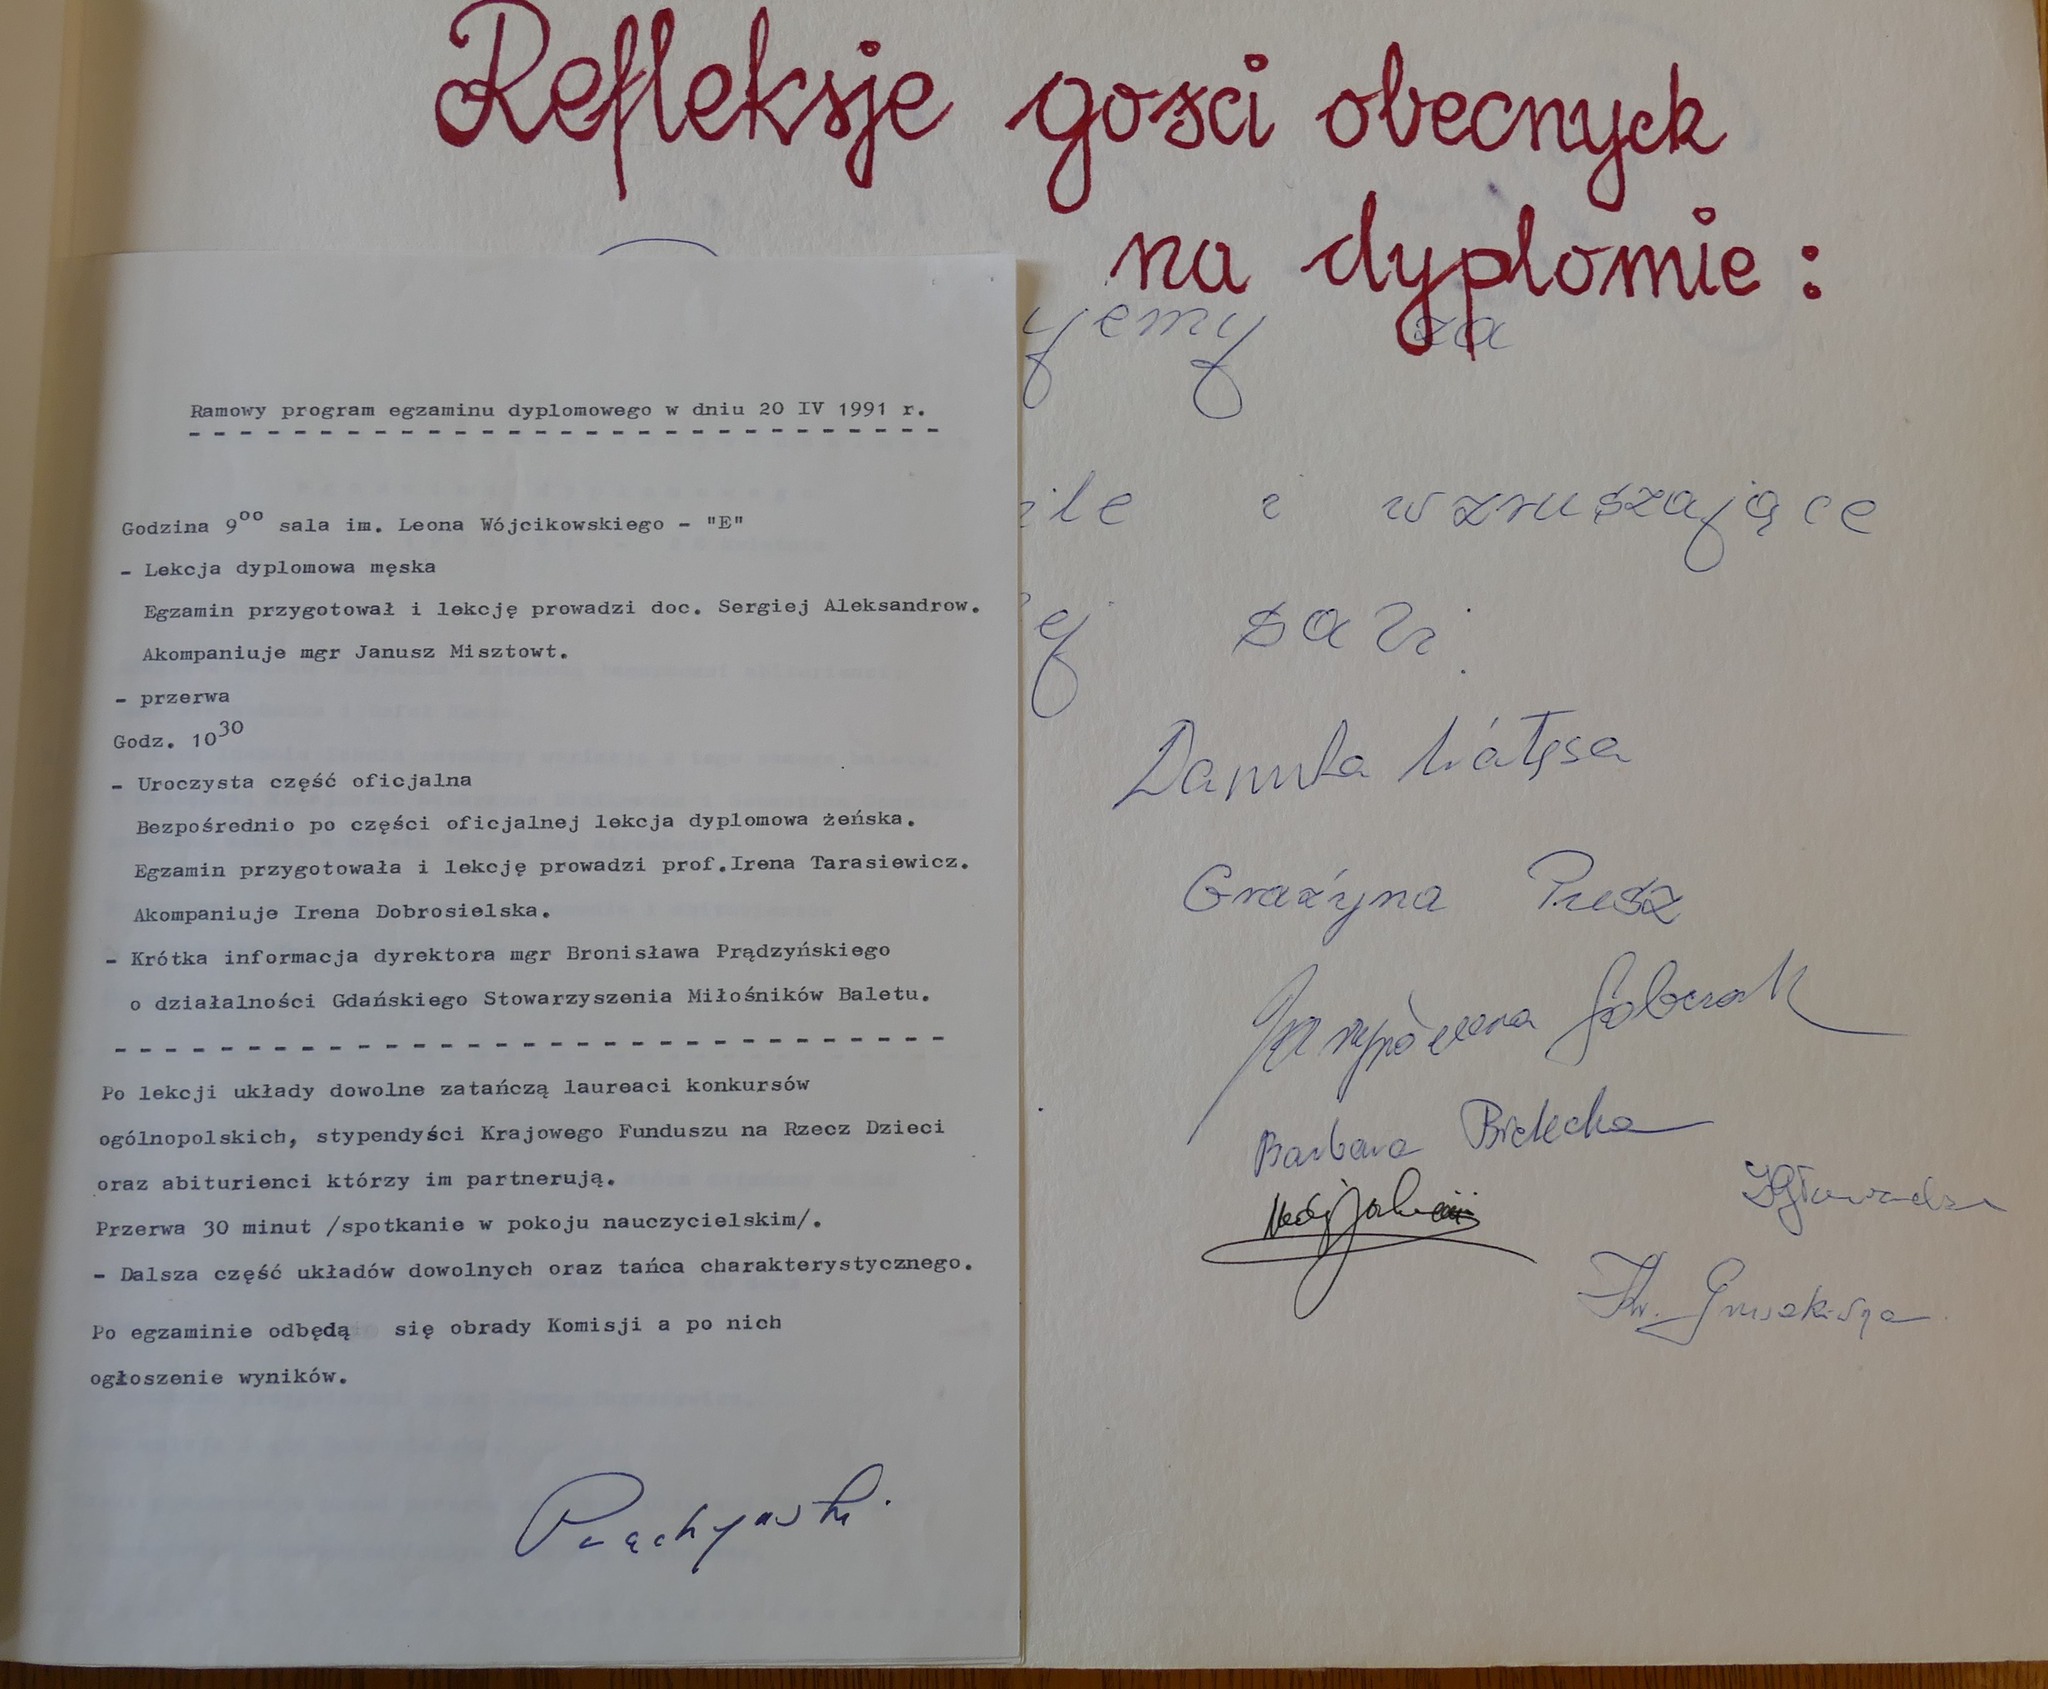 Refleksje gości obecnych
na dyplomie :
Ramowy program egzaminu dyplomowego w dniu 20 IV 1991 r.
Godzina 9⁰⁰ sala im. Leona Wójcikowskiego - "E"
- Lekcja dyplomowa męska
Egzamin przygotował i lekcję prowadzi doc. Sergiej Aleksandrow.
Akompaniuje mgr Janusz Misztowt.
- przerwa
Godz. 10³⁰
- Uroczysta część oficjalna
Bezpośrednio po części oficjalnej lekcja dyplomowa żeńska.
Egzamin przygotowała i lekcję prowadzi prof.Irena Tarasiewicz.
Akompaniuje Irena Dobrosielska.
- Krótka informacja dyrektora mgr Bronisława Prądzyńskiego
o działalności Gdańskiego Stowarzyszenia Miłośników Baletu.
Po lekcji układy dowolne zatańczą laureaci konkursów
ogólnopolskich, stypendyści Krajowego Funduszu na Rzecz Dzieci
oraz abiturienci którzy im partnerują.
Przerwa 30 minut /spotkanie w pokoju nauczycielskim/.
- Dalsza część układów dowolnych oraz tańca charakterystycznego.
Po egzaminie odbędą się obrady Komisji a po nich
ogłoszenie wyników.
yjemy za
ile i wzruszające
ej sali.
Danuta Wałęsa
Grażyna Pusz
Barbara Bielecka